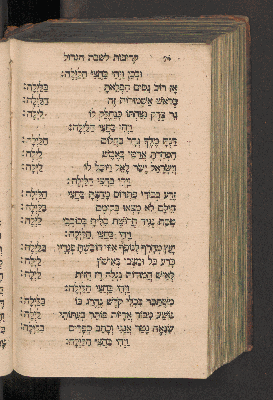 קרובות לשבת הגדול
ובכן ויהי בחצי הלילה:
אז רוב נסים הפלאת בלילה:
בראש אשמורות זה הלילה:
גר צדק נצחתו כנחלק לו לילה:
ויהי בחצי הלילה:
דנת מלך גרר בחלום הלילה:
הפחדת ארמי באמש לילה:
וישראל ישר לאל ויוכל לו לילה:
ויהי בחצי הלילה:
זרע בכורי פתרוס מחצת בחצי הלילה:
חילם לא מצאו בקומם בלילה:
טסת נגיד חרושת סלית בכוכבי לילה:
ויהי בחצי הלילה:
יעץ מחרף לנופף אווי הובשת פגריו בלילה:
כרע בל ומצבו באישון לילה:
לאיש חמודות נגלה רז חזות לילה:
ויהי בחצי הלילה:
משתכר בכלי קדש נהרג בו בלילה:
נושע מבור אריות פותר בעתותי לילה:
שנאה נטר אגגי וכתב ספרים בלילה:
ויהי בחצי הלילה: